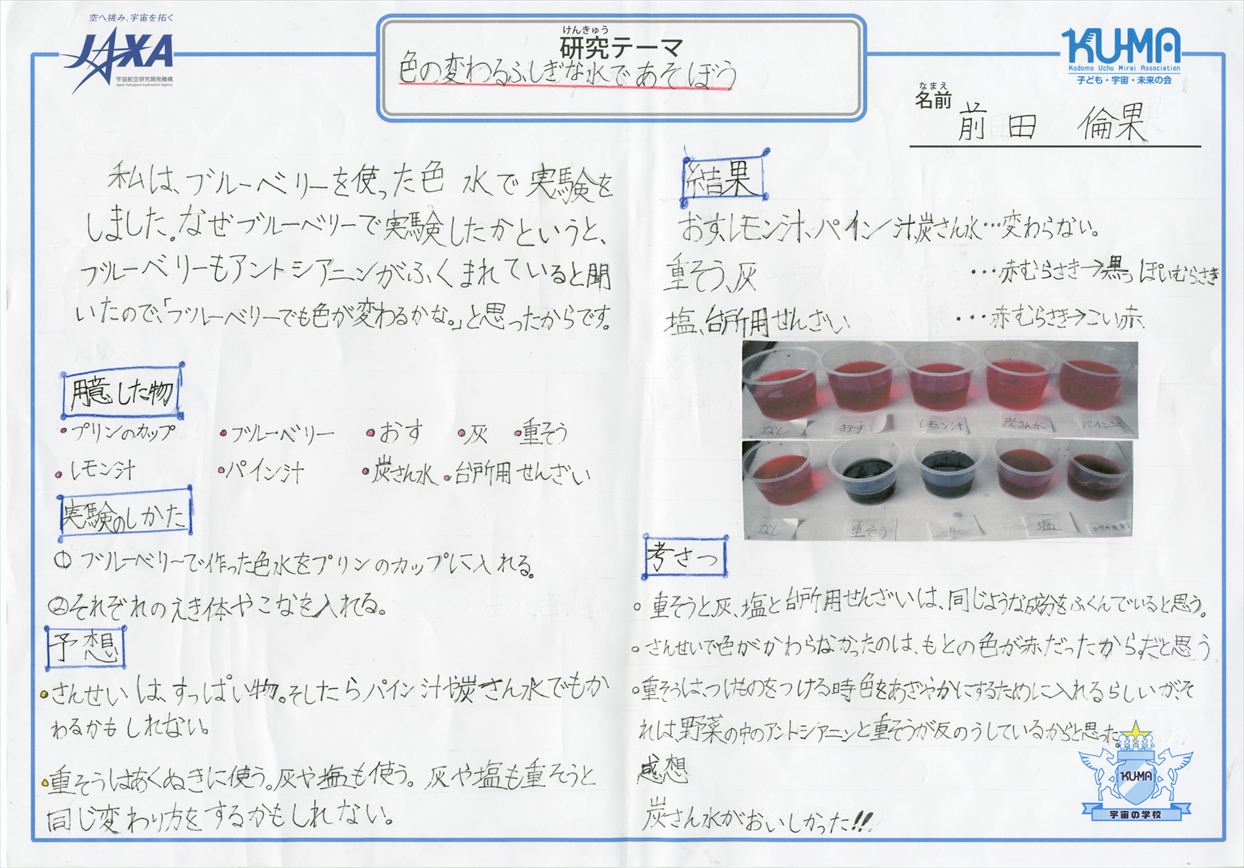 空へ挑み、宇宙を拓く
JAXA
宇宙航空研究開発機構
Japan Aerospace Exploration Agency
けんきゅう
研究テーマ
色の変わるふしぎな水であそぼう
KU-MA
Kodomo Uchu Mirai Association
子ども・宇宙・未来の会
なまえ
名前
前田 倫果
私は、ブルーベリーを使った色水で実験を
しました。なぜブルーベリーで実験したかというと、
ブルーベリーもアントシアニンがふくまれていると聞
いたので、「ブルーベリーでも色が変わるかな。」と思ったからです。
用意した物
・プリンのカップ ・ブルーベリー ・おす ・灰 ・重そう
・レモン汁 ・パイン汁 ・炭さん水 ・台所用せんざい
実験のしかた
① ブルーベリーで作った色水をプリンのカップに入れる。
②それぞれのえき体やこなを入れる。
予想
・さんせいは、すっぱい物。そしたらパイン汁や炭さん水でもか
わるかもしれない。
・重そうはあくぬきに使う。灰や塩も使う。灰や塩も重そうと
同じ変わり方をするかもしれない。
結果
おす、レモン汁、パイン汁、炭さん水…変わらない。
重そう、灰 …赤むらさき→黒っぽいむらさき
塩、台所用せんざい …赤むらさき→こい赤
なし おす レモン汁 炭さん水 パイン汁
なし 重そう 塩
考さつ
○ 重そうと灰、塩と台所用せんざいは、同じような成分をふくんでいると思う。
○ さんせいで色がかわらなかったのは、もとの色が赤だったからだと思う
○重そうは、つけものをつける時色をあざやかにするために入れるらしいが、そ
れは野菜の中のアントシアニンと重そうが反のうしているからだと思った。
感想
炭さん水がおいしかった!!
KU-MA
宇宙の学校